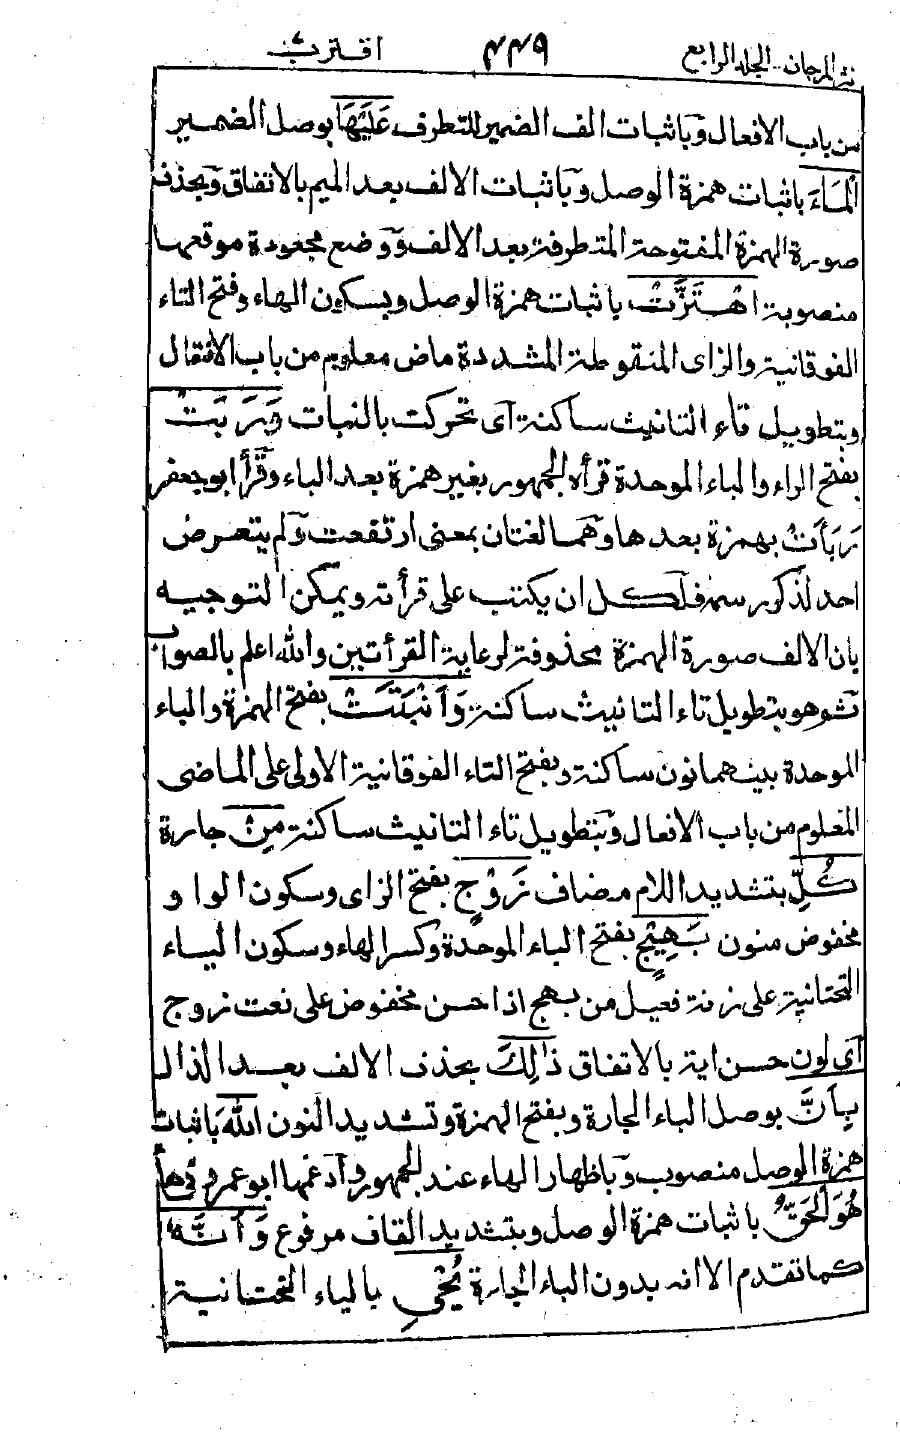 نثر المرجان - الجلد الرابع ۴۴۹ اقترب
من باب الافعال وباثبات الف الضمير للتطرف عَلَيْهَا بوصل الضمير
الْمَآءَ باثبات همزة الوصل وباثبات الالف بعد الميم بالاتفاق وبحذف
صورة الهمزة المفتوحة المتطرفة بعد الالف ووضع مجعودة موقعها
منصوبة اهْتَزَّتْ باثبات همزة الوصل وبسكون الهاء وفتح التاء
الفوقانية والزاى المنقوطة المشددة ماض معلوم من باب الافتعال
وبتطويل تاء التانيث ساكنة آى تحركت بالنبات وَرَبَتْ
بفتح الراء والباء الموحدة قرأه الجمهور بغير همزة بعد الباء وقرأ ابو جعفر
رَبَأَتْ بهمزة بعدها وهما لغتان بمعنى ارتفعت ولم يتعرض
احد لذكر رسمه فلكل ان يكتب على قرأته ويمكن التوجيه
بان الالف صورة الهمزة محذوفة لرعاية القرأتين والله اعلم بالصواب
ثم هو بتطويل تاء التانيث ساكنة وَأَنْبَتَتْ بفتح الهمزة والباء
الموحدة بينهما نون ساكنة وبفتح التاء الفوقانية الاولى على الماضى
المعلوم من باب الافعال وبتطويل تاء التانيث ساكنة مِنْ جارة
كُلِّ بتشديد اللام مضاف زَوْجٍ بفتح الزاى وسكون الواو
مخفوض منون بَهِيْجٍ بفتح الباء الموحدة وكسر الهاء وسكون الياء
التحتانية على زنة فعيل من بهج اذا حسن مخفوض على نعت زوج
آى لون حسن اية بالاتفاق ذٰلِكَ بحذف الالف بعد الذال
بِأَنَّ بوصل الباء الجارة وبفتح الهمزة وتشديد النون اللهَ باثبات
همزة الوصل منصوب وباظهار الهاء عند الجمهور وآدغمها ابو عمرو فى هاء
هُوَ الْحَقُّ باثبات همزة الوصل وبتشديد القاف مرفوع وَأَنَّهُ
كما تقدم الا انه بدون الباء الجارة يُحْيِ بالياء التحتانية